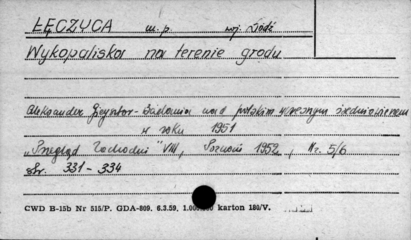 ŁĘCZYCA m. p. woj. Łódź
Wykopaliska na terenie grodu
Aleksander Gieysztor - Badania nad polskim wczesnym średniowieczem
w roku 1951
„Przegląd Zachodni" VIII, Poznań 1952, Nr. 5/6
Str. 331 - 334
CWD B-15b Nr 515/P. GDA-809. 6.3.59. karton 180/V.